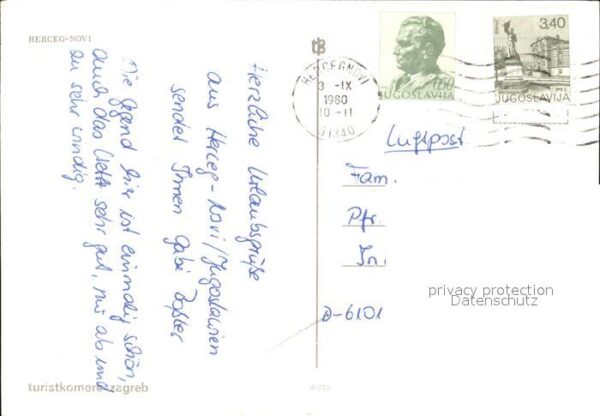 HERCEG-NOVI
Herzliche Urlaubsgrüße
aus Herceg-Novi/Jugoslawien
sendet Ihnen Gabi
Die Gegend hier ist einmalig schön,
auch das Wetter sehr gut, nur ab und
zu sehr windig.
turistkomerc-zagreb
HERCEGNOVI
3 -IX
1980
10-11
0,50
JUGOSLAVIJA
3,40
JUGOSLAVIJA
Luftpost
Fam.
Pfr.
In
D-6101
privacy protection
Datenschutz